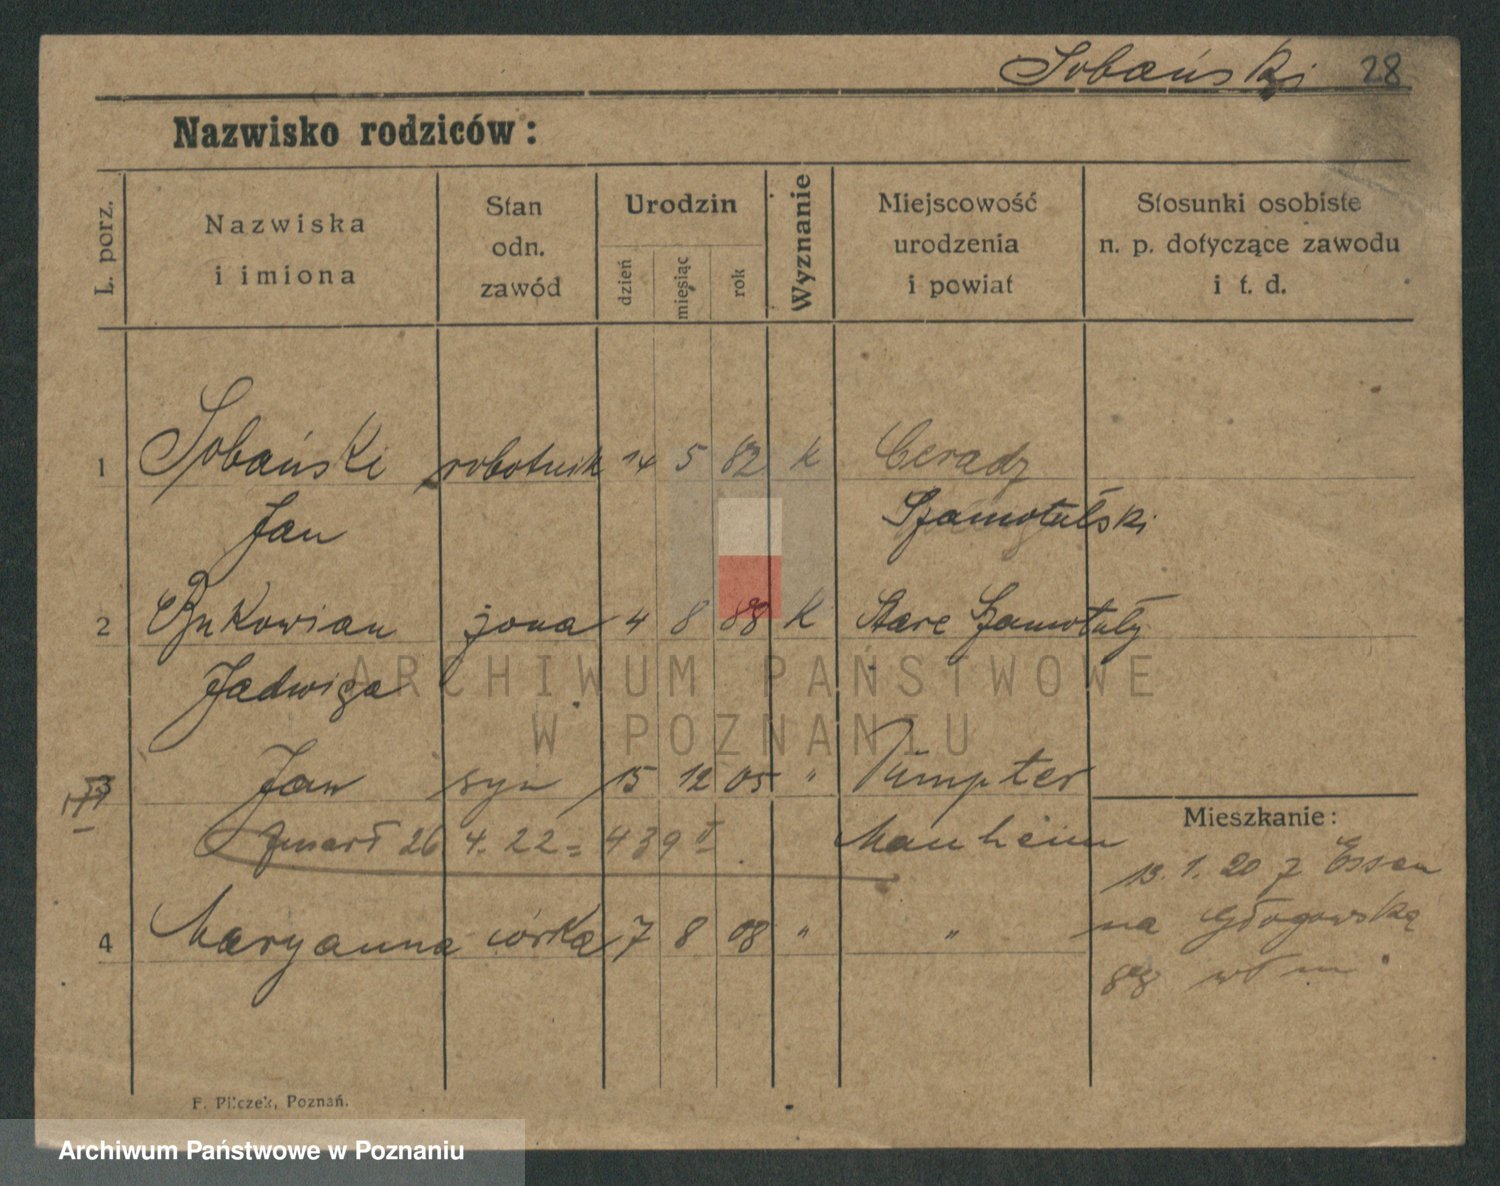 Sobański 28
Nazwisko rodziców:
L. porz.
Nazwiska
i imiona
Stan
odn.
zawód
Urodzin
dzień
miesiąc
rok
Wyznanie
Miejscowość
urodzenia
i powiat
Stosunki osobiste
n. p. dotyczące zawodu
i t. d.
1 Sobański robotnik 14 5 82 k Ceradz
Jan Szamotulski
2 żona 4 8 88 k Stare Szamotuły
Jadwiga
ARCHIWUM PAŃSTWOWE
W POZNANIU
3 Jan syn 15 12 05 "
Mieszkanie:
zmarł 26 4. 22 = 439 Manheim
13. 1. 20 z Essen
4 Maryanna córka 7 8 08 " "
na Głogowską
88
F. Pilczek, Poznań.
Archiwum Państwowe w Poznaniu